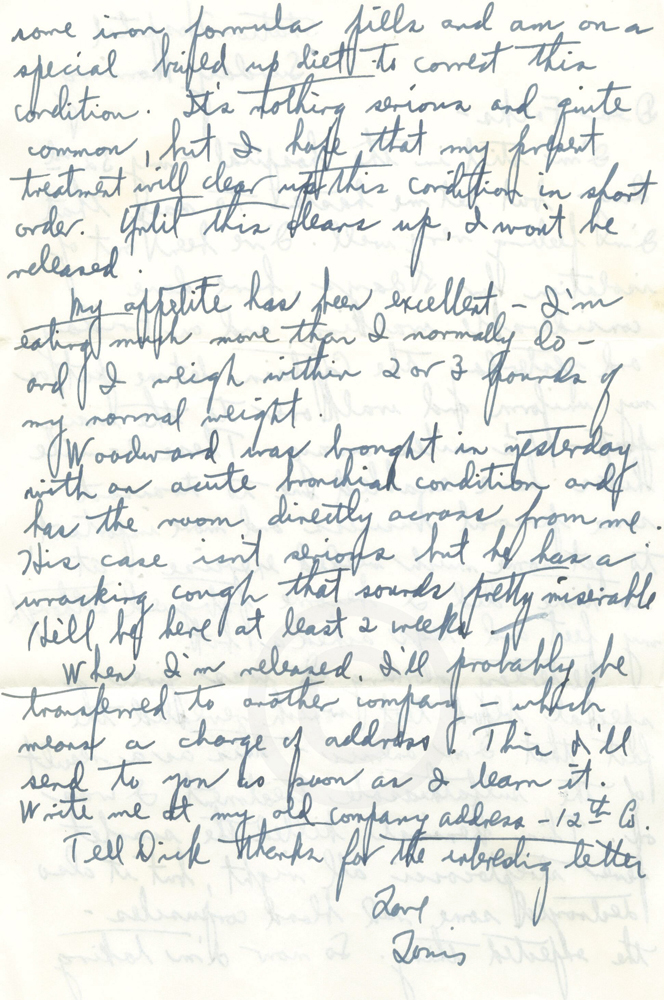 some iron formula pills and am on a
special build up diet to correct this
condition. It's nothing serious and quite
common, but I hope that my present
treatment will clear up this condition in short
order. Until this clears up, I won't be
released.
My appetite has been excellent - I'm
eating much more than I normally do -
and I weigh within 2 or 3 pounds of
my normal weight.
Woodward was brought in yesterday
with an acute bronchial condition and
has the room directly across from me.
His case isn't serious but he has a
wracking cough that sounds pretty miserable
He'll be here at least 2 weeks.
When I'm released, I'll probably be
transferred to another company - which
means a change of address. This I'll
send to you as soon as I learn it.
Write me at my old company address - 12th Co.
Tell Dick thanks for the interesting letter
Love
Louis